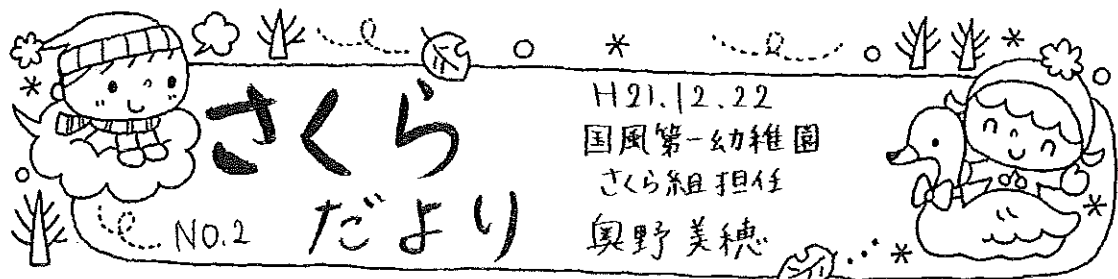 さくら
だより
NO.2
H21.12.22
国風第一幼稚園
さくら組担任
奥野美穂